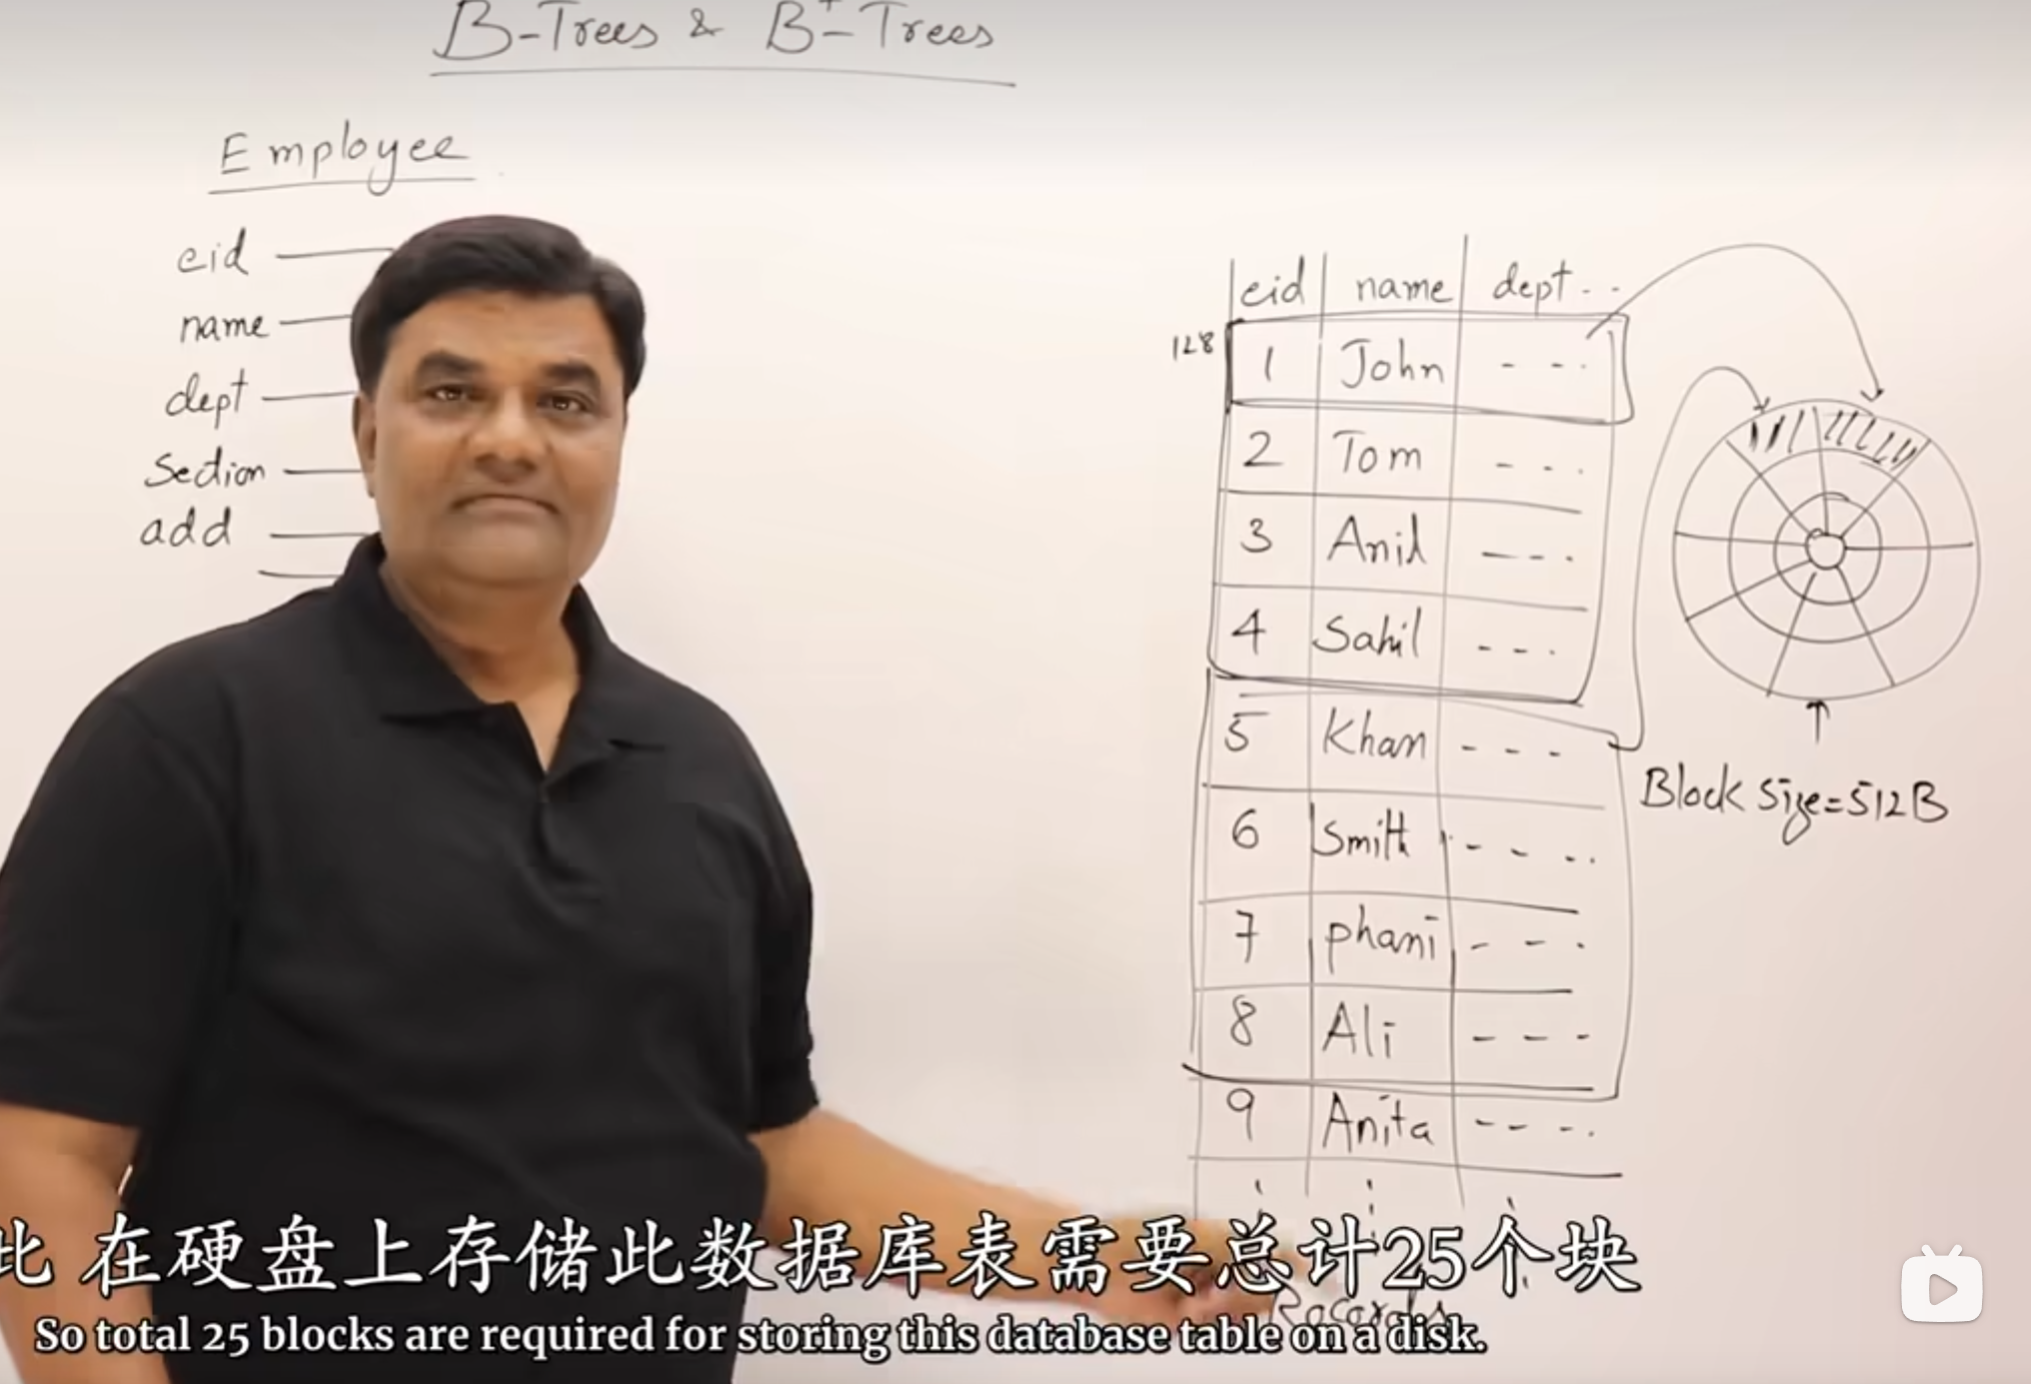 B-Trees & B+-Trees
Employee
eid
name
dept
Section
add
eid name dept - -
128
1 John - - -
2 Tom - - -
3 Anil - - -
4 Sahil - - -
5 Khan - - -
6 Smith - - - -
7 phani - - -
8 Ali - - -
9 Anita - - - -
Block size=512B
此 在硬盘上存储此数据库表需要总计25个块
So total 25 blocks are required for storing this database table on a disk.